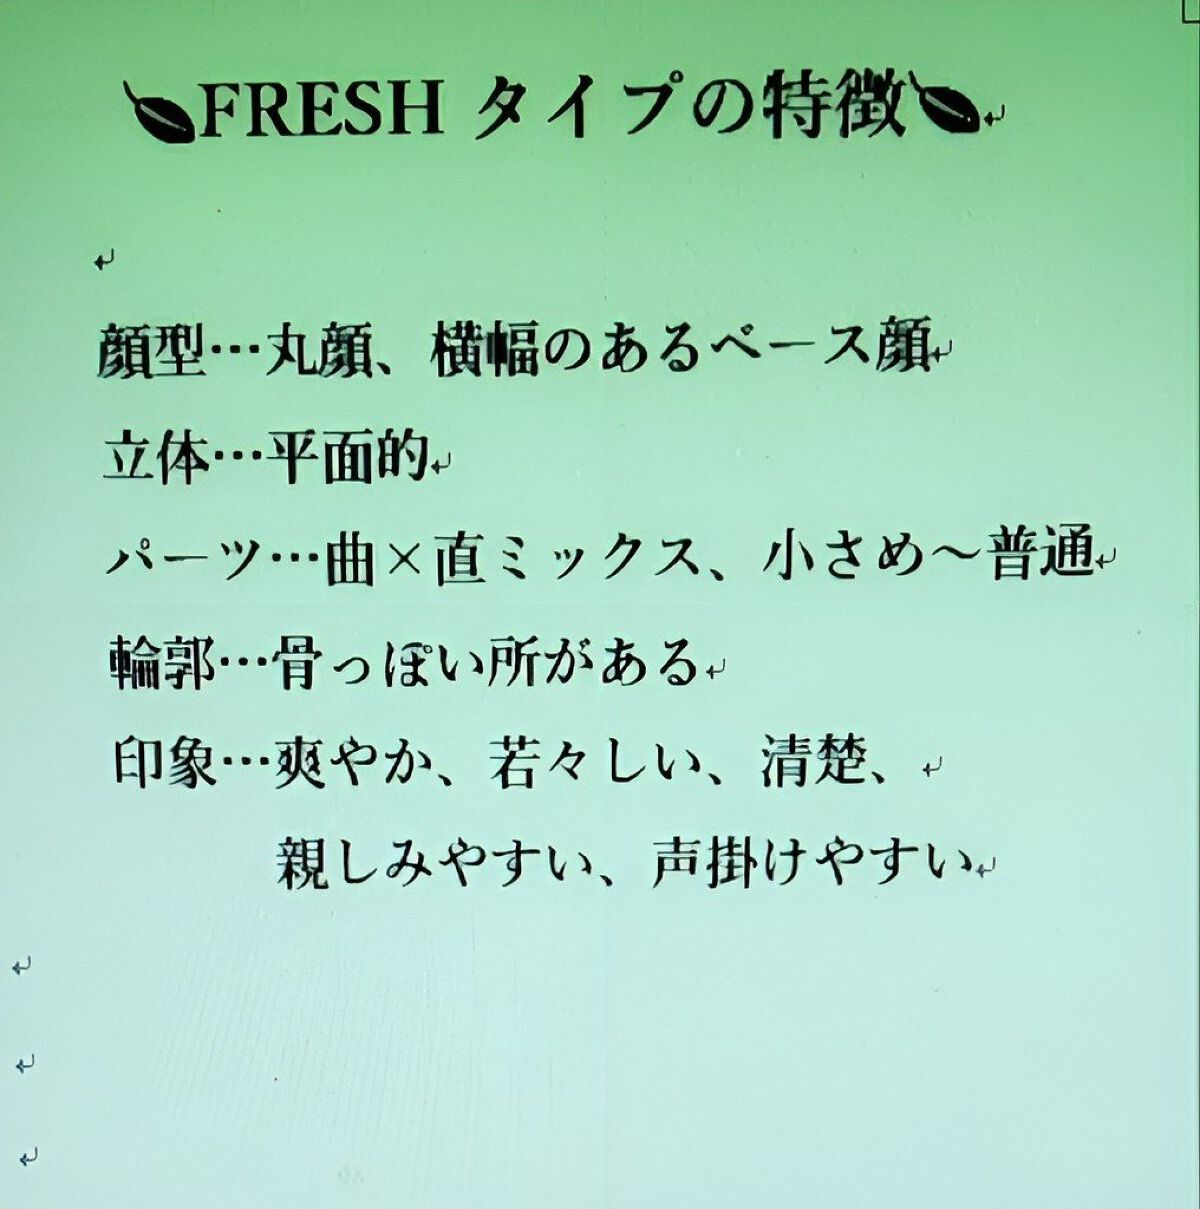 FRESH タイプの特徴
顔型…丸顔、横幅のあるベース顔
立体…平面的
パーツ…曲×直ミックス、小さめ～普通
輪郭…骨っぽい所がある
印象…爽やか、若々しい、清楚、
親しみやすい、声掛けやすい